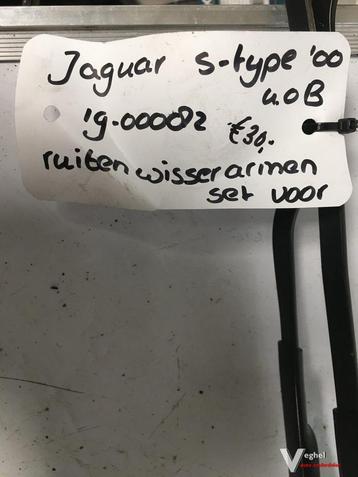 Jaguar s-type '00
4.0B
'g-000082 €30,-
ruitenwisserarmen
set voor
Veghel